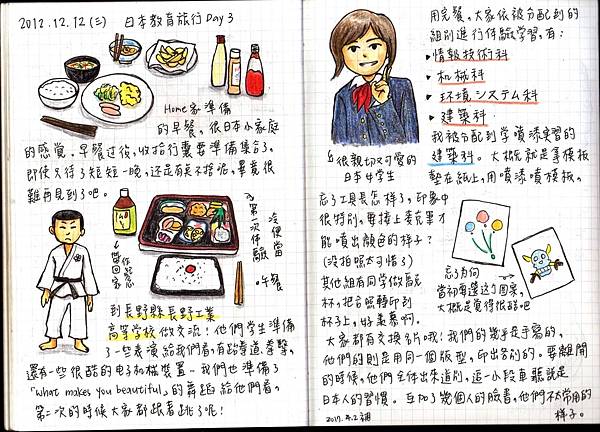 2012.12.12(三) 日本教育旅行 Day 3
Home家準備
的早餐, 很日本小家庭
的感覺。早餐过後, 收拾行囊要準備集合了,
即使只待了短短一晚, 还是有点不捨呢, 畢竟很
難再見到了吧。
第一次体驗
冷便當
午餐
到長野縣長野工業
高等学校做交流! 他們学生準備
了一些表演給我們看, 有跆拳道、拳擊,
還有一些很酷的电子和機械裝置。我們也準備了
「what makes you beautiful」的舞蹈給他們看,
第二次的時候大家都跟着跳了呢!
用完餐, 大家依被分配到的
組別進行体驗学習, 有:
・情報技術科
・机械科
・环境システム科
・建築科.
我被分配到学噴漆実習的
建築科。大概就是拿模板
墊在紙上, 用噴漆噴模板。
很親切又可愛的
日本中学生
忘了工具長怎样了, 印象中
很特別, 要接上麦克筆才
能噴出顏色的样子?
(没拍照太可惜了)
其他組有同学做馬
杯, 把合照轉印到
杯子上, 好羨慕啊。
忘了为何
當初要選这个図案,
大概是覺得很酷吧
大家都有交換名片哦! 我們的幾乎是手寫的,
他們的則是用同一個版型, 印出密別的。要離開
的時候, 他們全体出來道別, 這一小段車聽說是
日本人的習慣。互加了幾個人的臉書, 他們不太常用的
样子。
2017.4.2 補